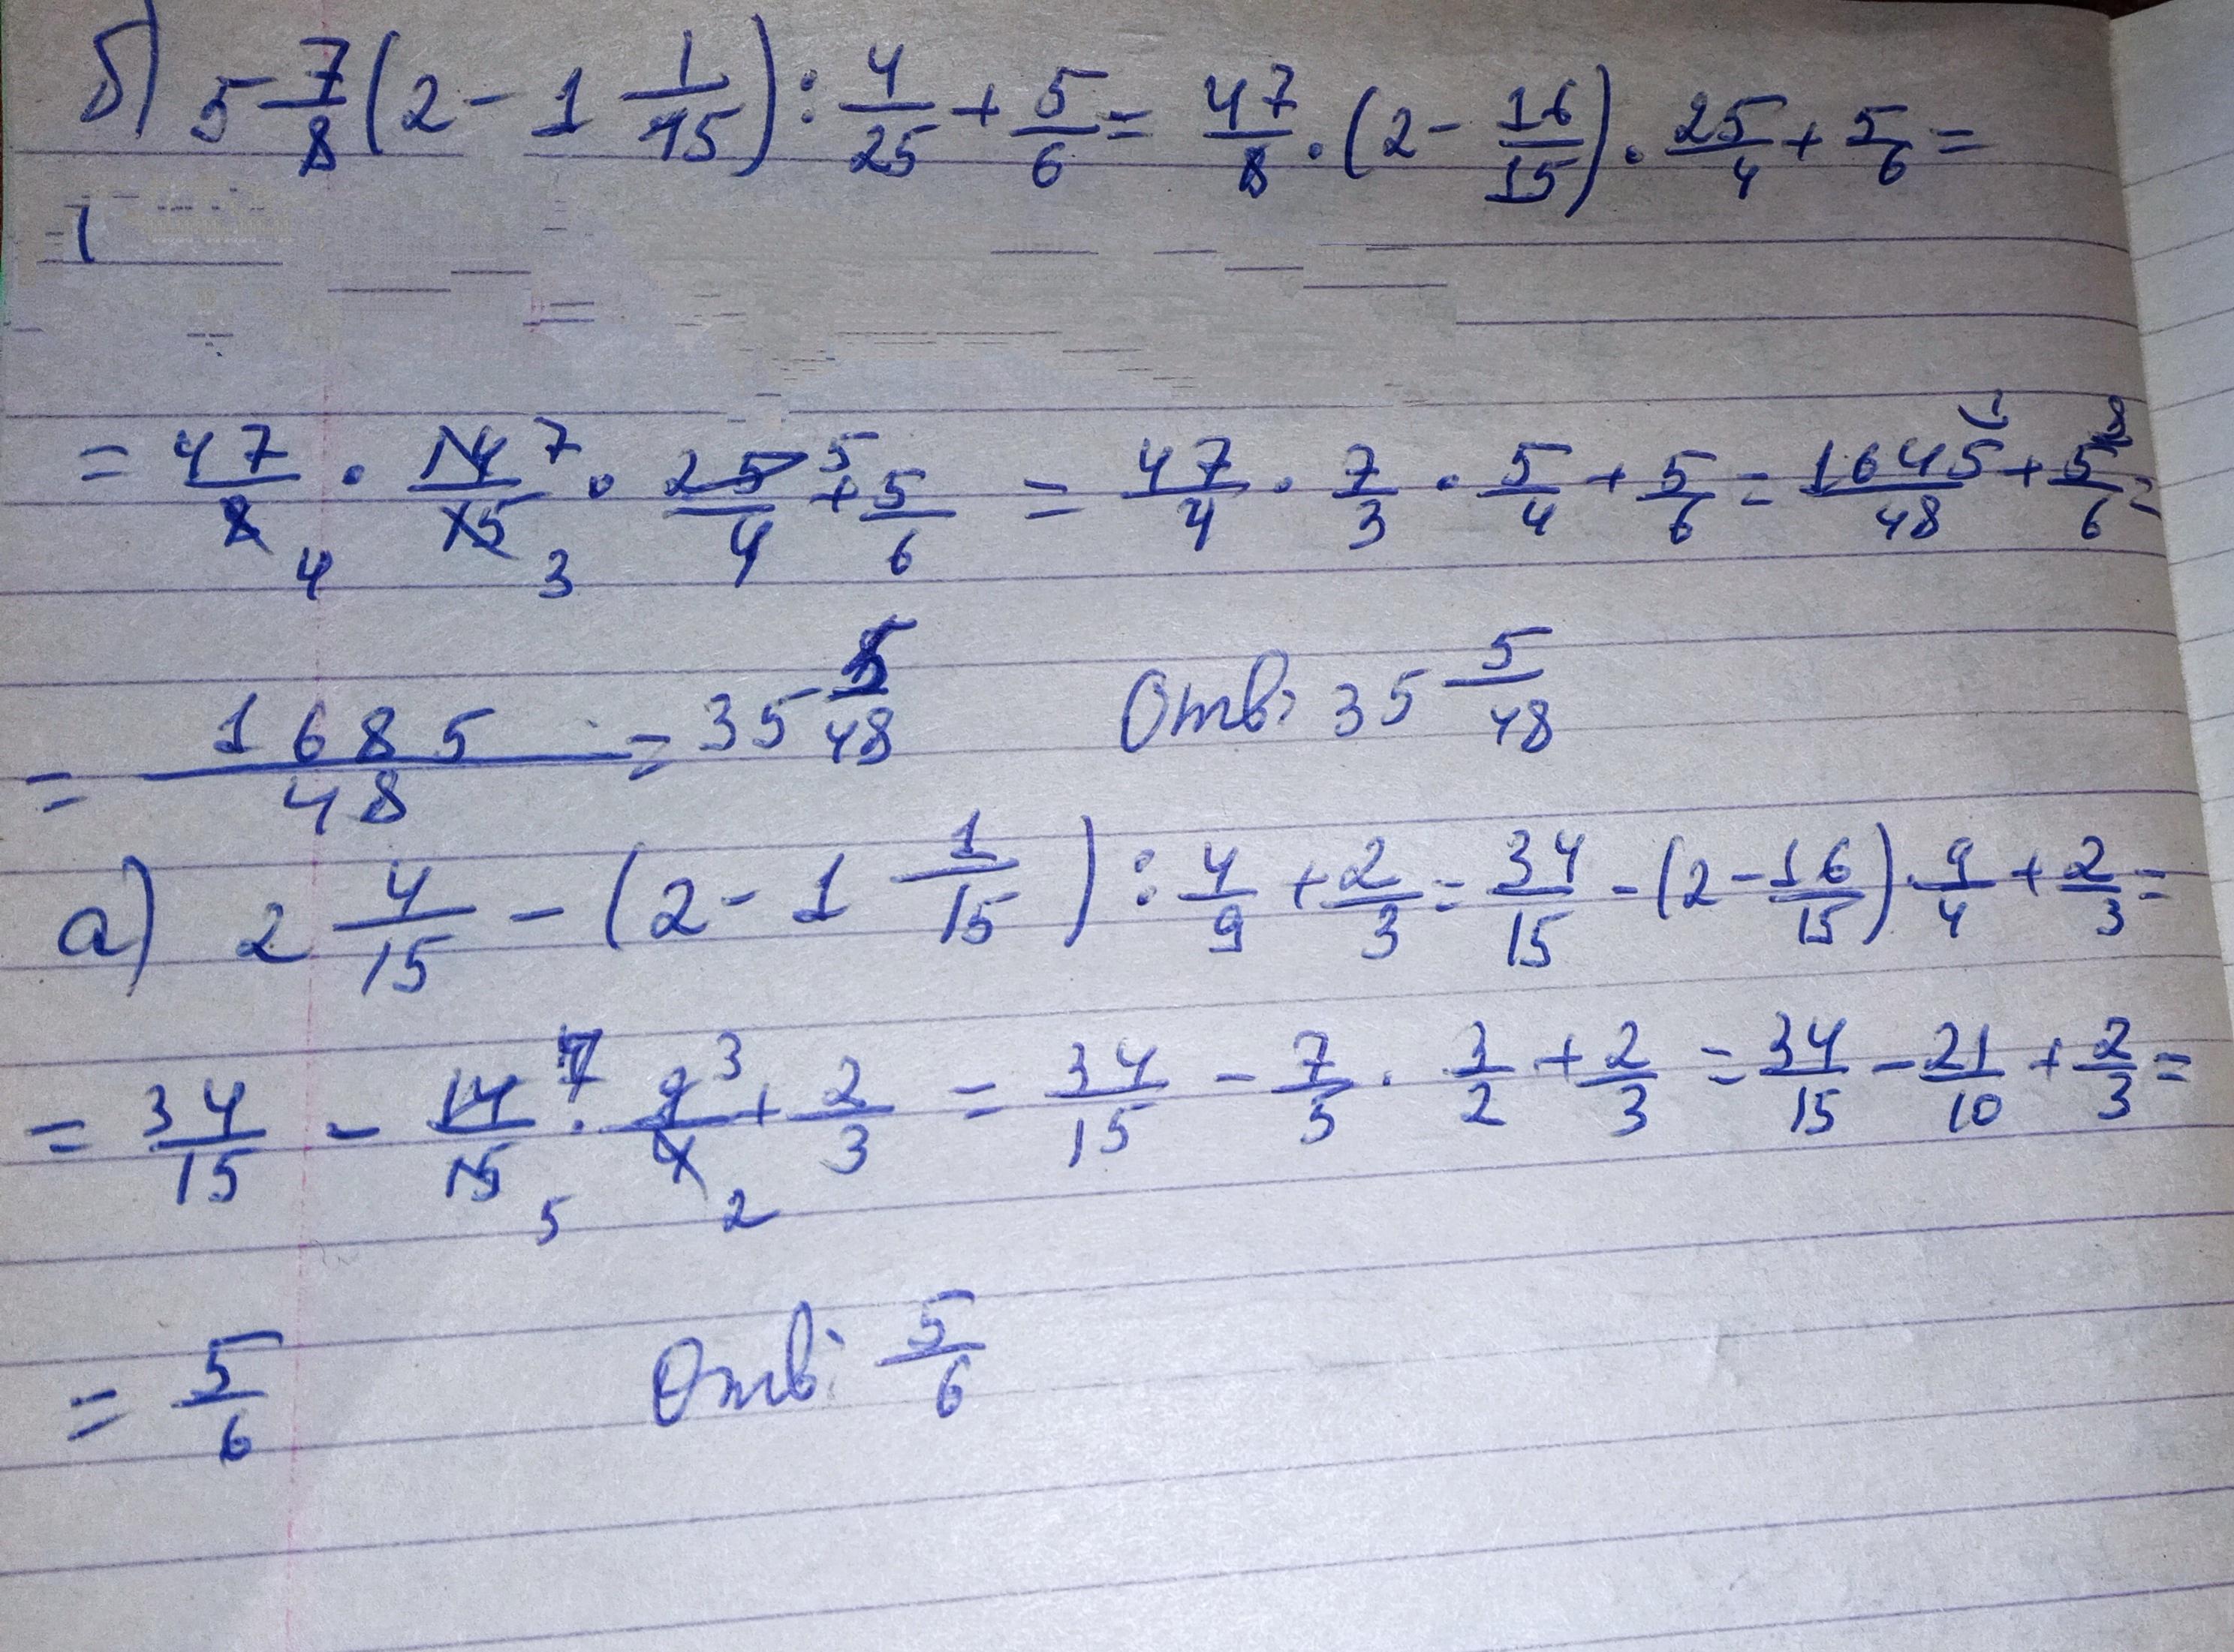 б) 5 7/8 (2 - 1 1/15) : 4/25 + 5/6 = 47/8 · (2 - 16/15) · 25/4 + 5/6 =
= 47/8 4 · 14/15 7 3 · 25/4 5 + 5/6 = 47/4 · 7/3 · 5/4 + 5/6 = 1645/48 1 + 5/6 8 =
= 1685/48 = 35 5/48 Отв: 35 5/48
а) 2 4/15 - (2 - 1 1/15) : 4/9 + 2/3 = 34/15 - (2 - 16/15) · 9/4 + 2/3 =
= 34/15 - 14/15 7 5 · 9/4 3 2 + 2/3 = 34/15 - 7/5 · 3/2 + 2/3 = 34/15 - 21/10 + 2/3 =
= 5/6 Отв: 5/6